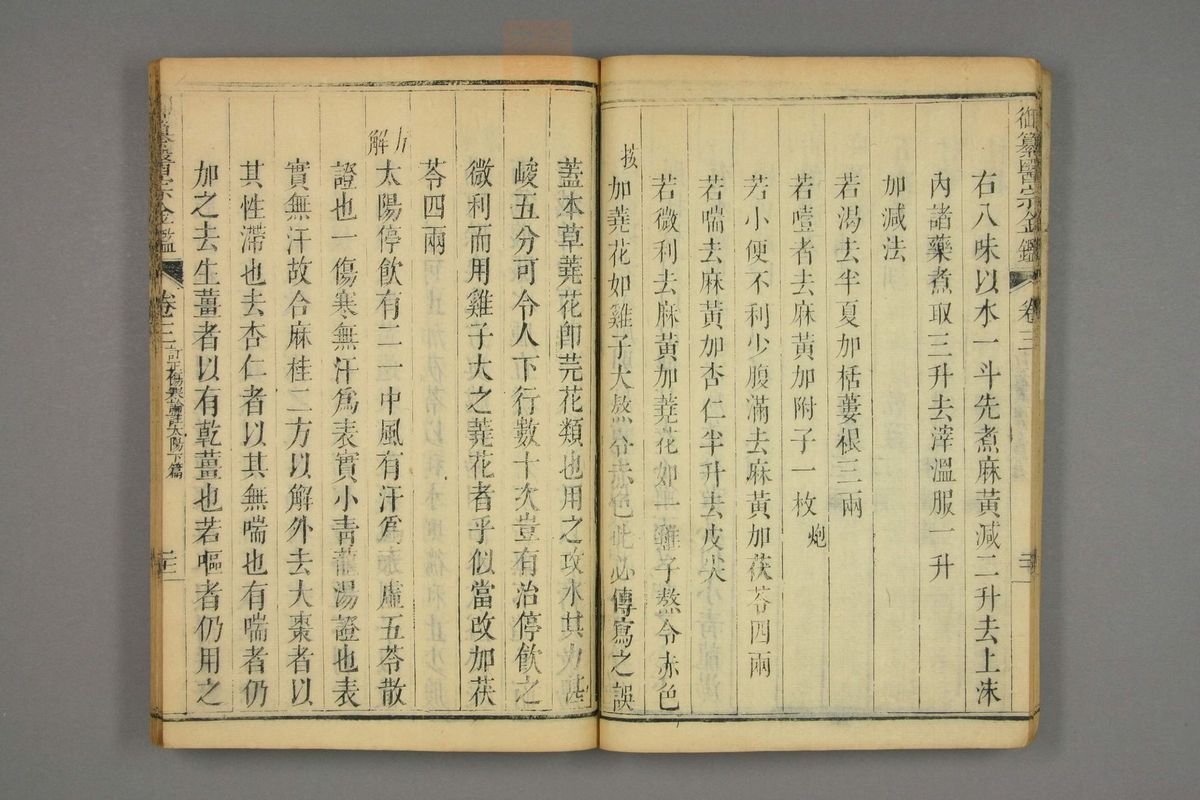 御纂醫宗金鑑 卷三
右八味以水一斗先煮麻黃減二升去上沫
內諸藥煮取三升去滓溫服一升
加減法
若渴去半夏加栝蔞根三兩
若噎者去麻黃加附子一枚炮
若小便不利少腹滿去麻黃加茯苓四兩
若喘去麻黃加杏仁半升去皮尖
若微利去麻黃加蕘花如一雞子熬令赤色
按加蕘花如雞子大熬令赤色此必傳寫之誤
蓋本草蕘花卽芫花類也用之攻水其力甚
峻五分可令人下行數十次豈有治停飲之
微利而用雞子大之蕘花者乎似當改加茯
苓四兩
方解
太陽停飲有二一中風有汗爲表虛五苓散
證也一傷寒無汗爲表實小青龍湯證也表
實無汗故合麻桂二方以解外去大棗者以
其性滯也去杏仁者以其無喘也有喘者仍
加之去生薑者以有乾薑也若嘔者仍用之
醫宗金鑑 卷三 訂正傷寒論註太陽下篇